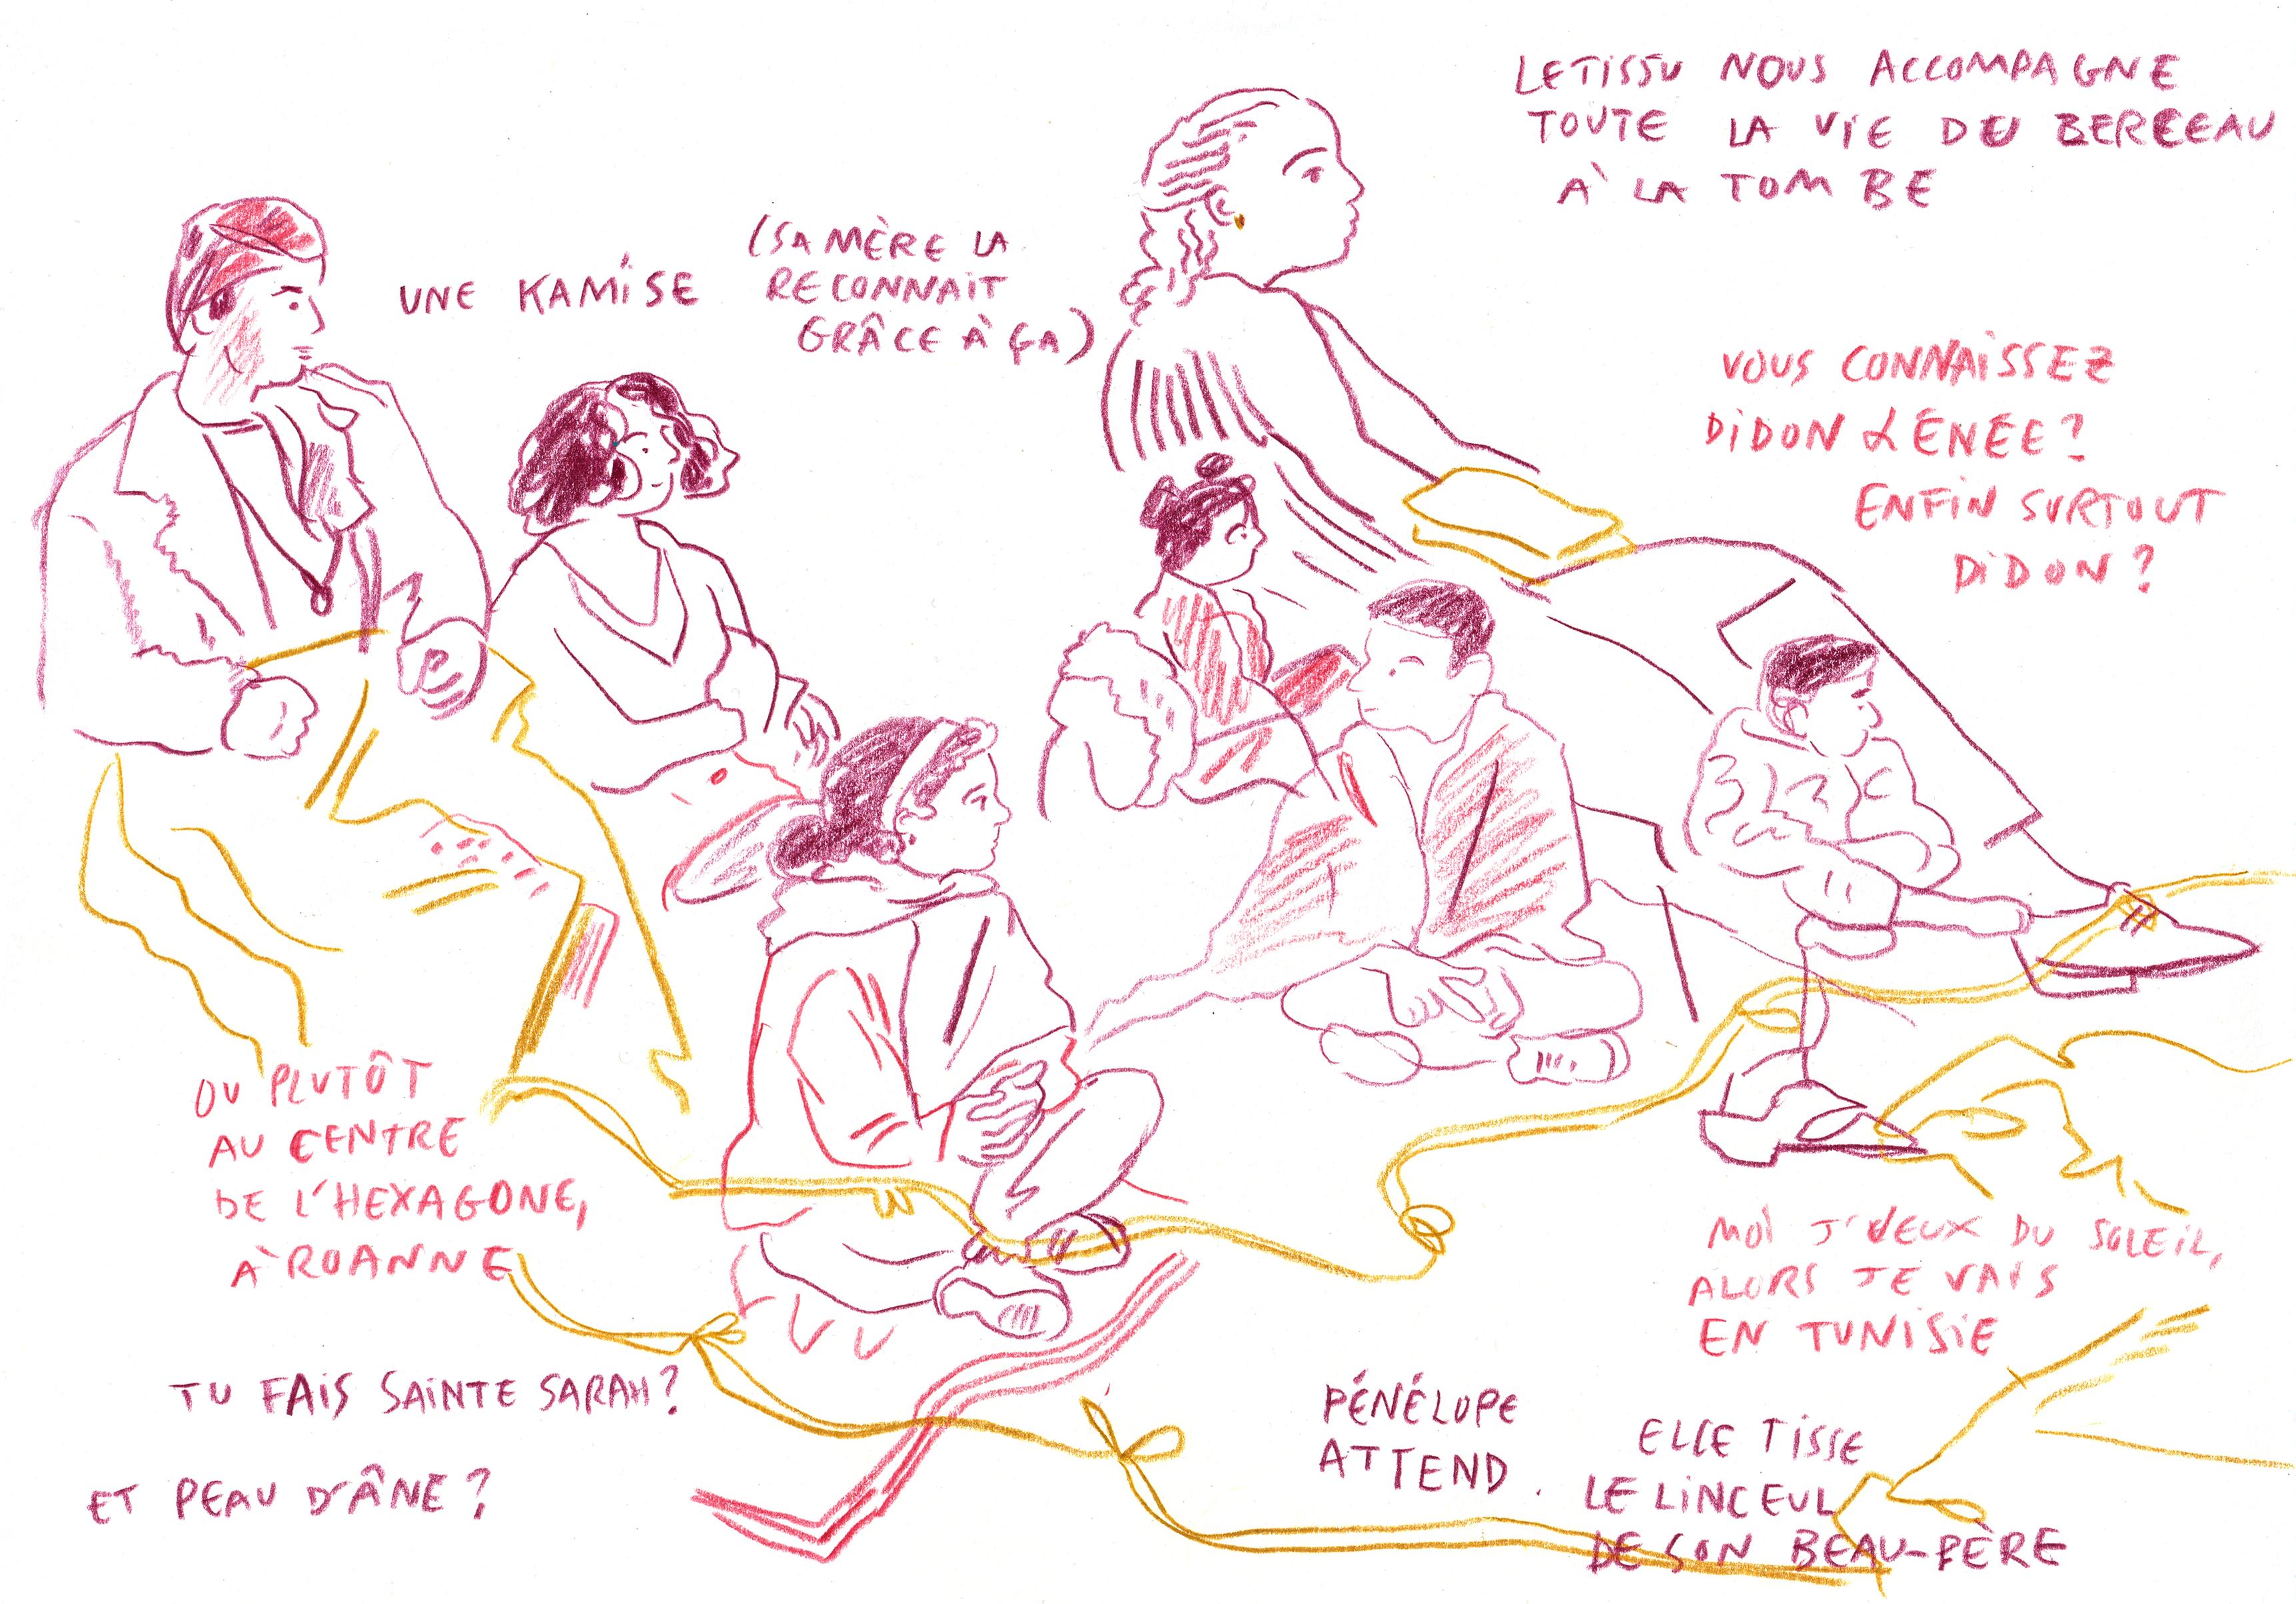 LE TISSU NOUS ACCOMPAGNE
TOUTE LA VIE DU BERCEAU
À LA TOMBE
UNE KAMISE
(SA MÈRE LA
RECONNAIT
GRÂCE À ÇA)
VOUS CONNAISSEZ
DIDON & ENÉE?
ENFIN SURTOUT
DIDON?
OU PLUTÔT
AU CENTRE
DE L'HEXAGONE,
À ROANNE
MOI J'VEUX DU SOLEIL,
ALORS JE VAIS
EN TUNISIE
TU FAIS SAINTE SARAH?
ET PEAU D'ÂNE?
PÉNÉLOPE
ATTEND.
ELLE TISSE
LE LINCEUL
DE SON BEAU-PÈRE